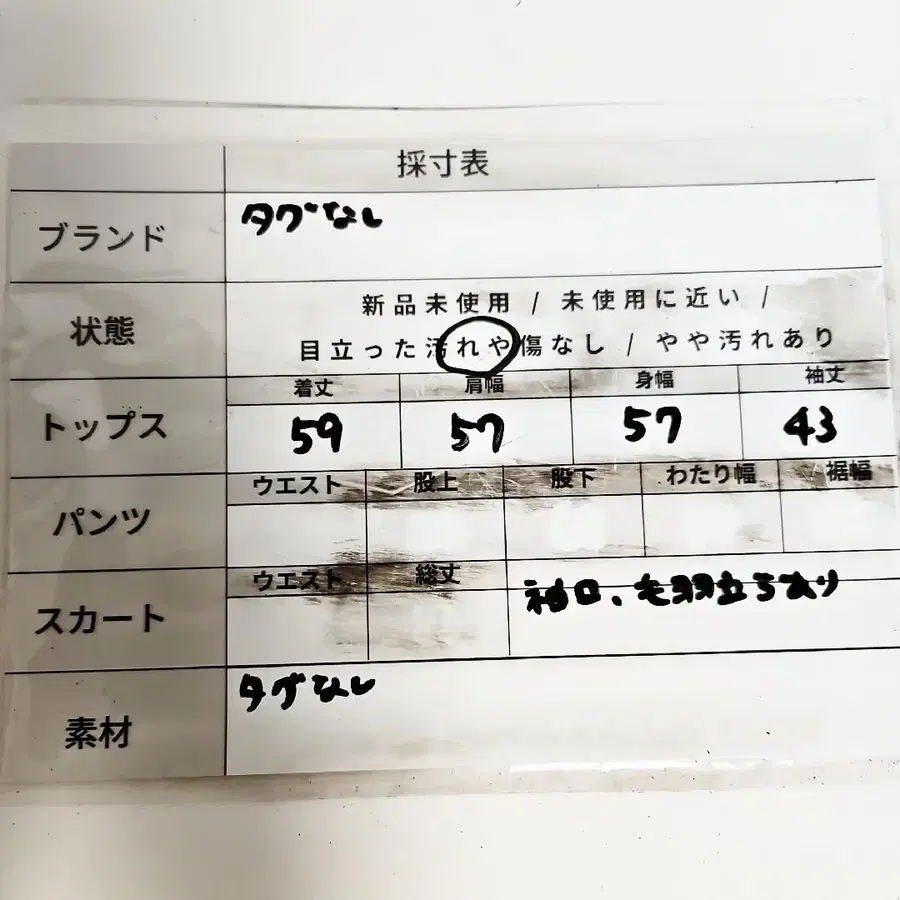 採寸表
ブランド タグなし
状態 新品未使用 / 未使用に近い /
目立った汚れや傷なし / やや汚れあり
トップス 着丈 肩幅 身幅 袖丈
59 57 57 43
パンツ ウエスト 股上 股下 わたり幅 裾幅
スカート ウエスト 総丈
袖口、毛羽立ちあり
素材 タグなし